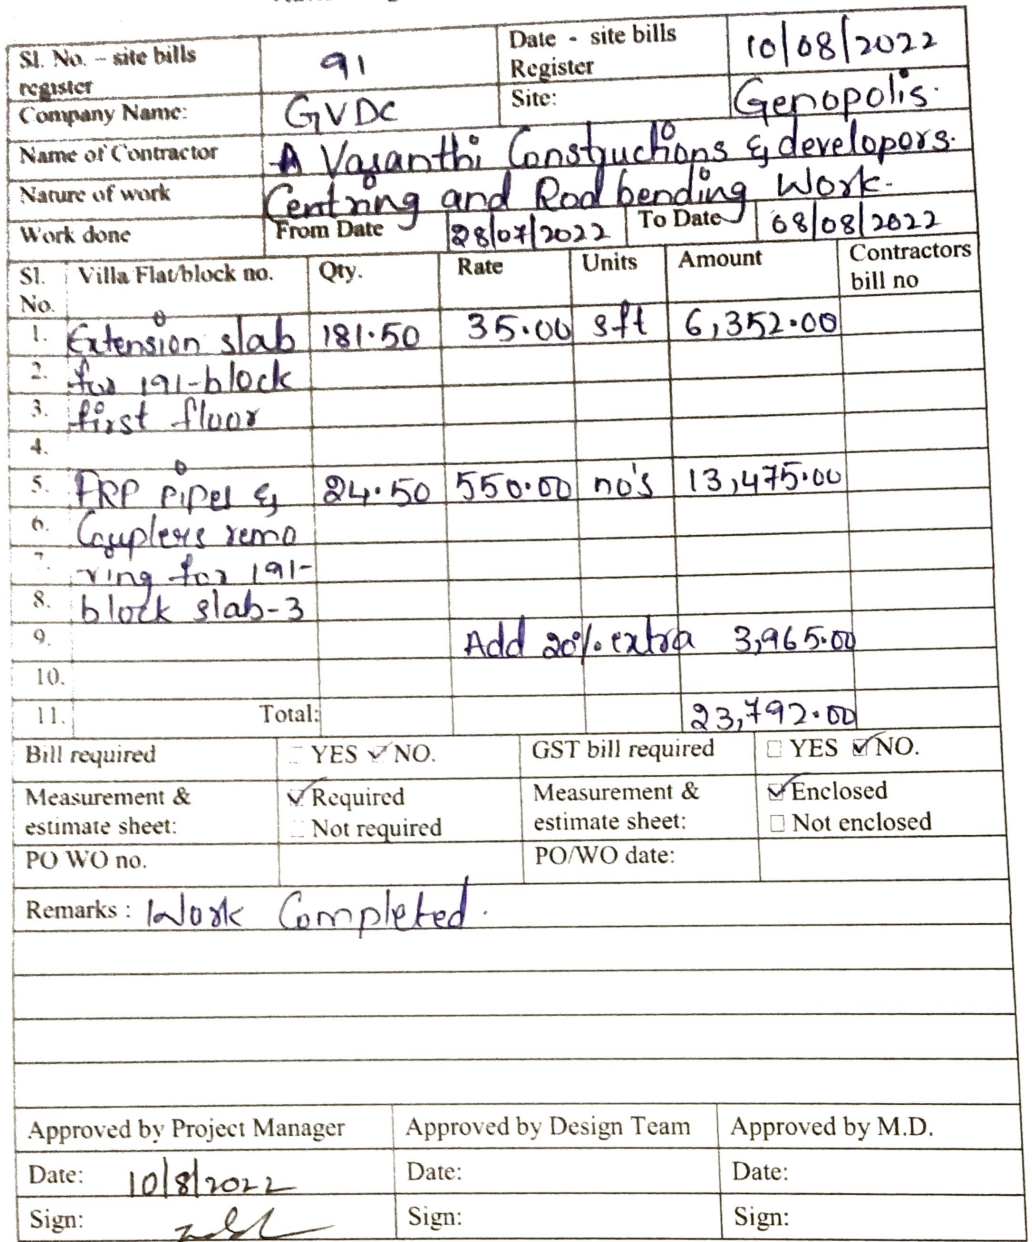 Sl. No. – site bills register 91 Date - site bills Register 10/08/2022
Company Name: GVDC Site: Genopolis.
Name of Contractor A Vasanthi Constructions & developers.
Nature of work Centring and Rod bending Work.
Work done From Date 28/07/2022 To Date 08/08/2022
Sl. No. Villa Flat/block no. Qty. Rate Units Amount Contractors bill no
1. Extension slab 181.50 35.00 sft 6,352.00
2. for 191-block
3. first floor
4.
5. FRP pipes & 24.50 550.00 no's 13,475.00
6. Couplers remo
7. ving for 191-
8. block slab-3
9. Add 20% extra 3,965.00
10.
11. Total: 23,792.00
Bill required YES NO. GST bill required YES NO.
Measurement & estimate sheet: Required Measurement & estimate sheet: Enclosed
Not required Not enclosed
PO WO no. PO/WO date:
Remarks : Work Completed.
Approved by Project Manager Approved by Design Team Approved by M.D.
Date: 10/8/2022 Date: Date:
Sign: Sign: Sign: